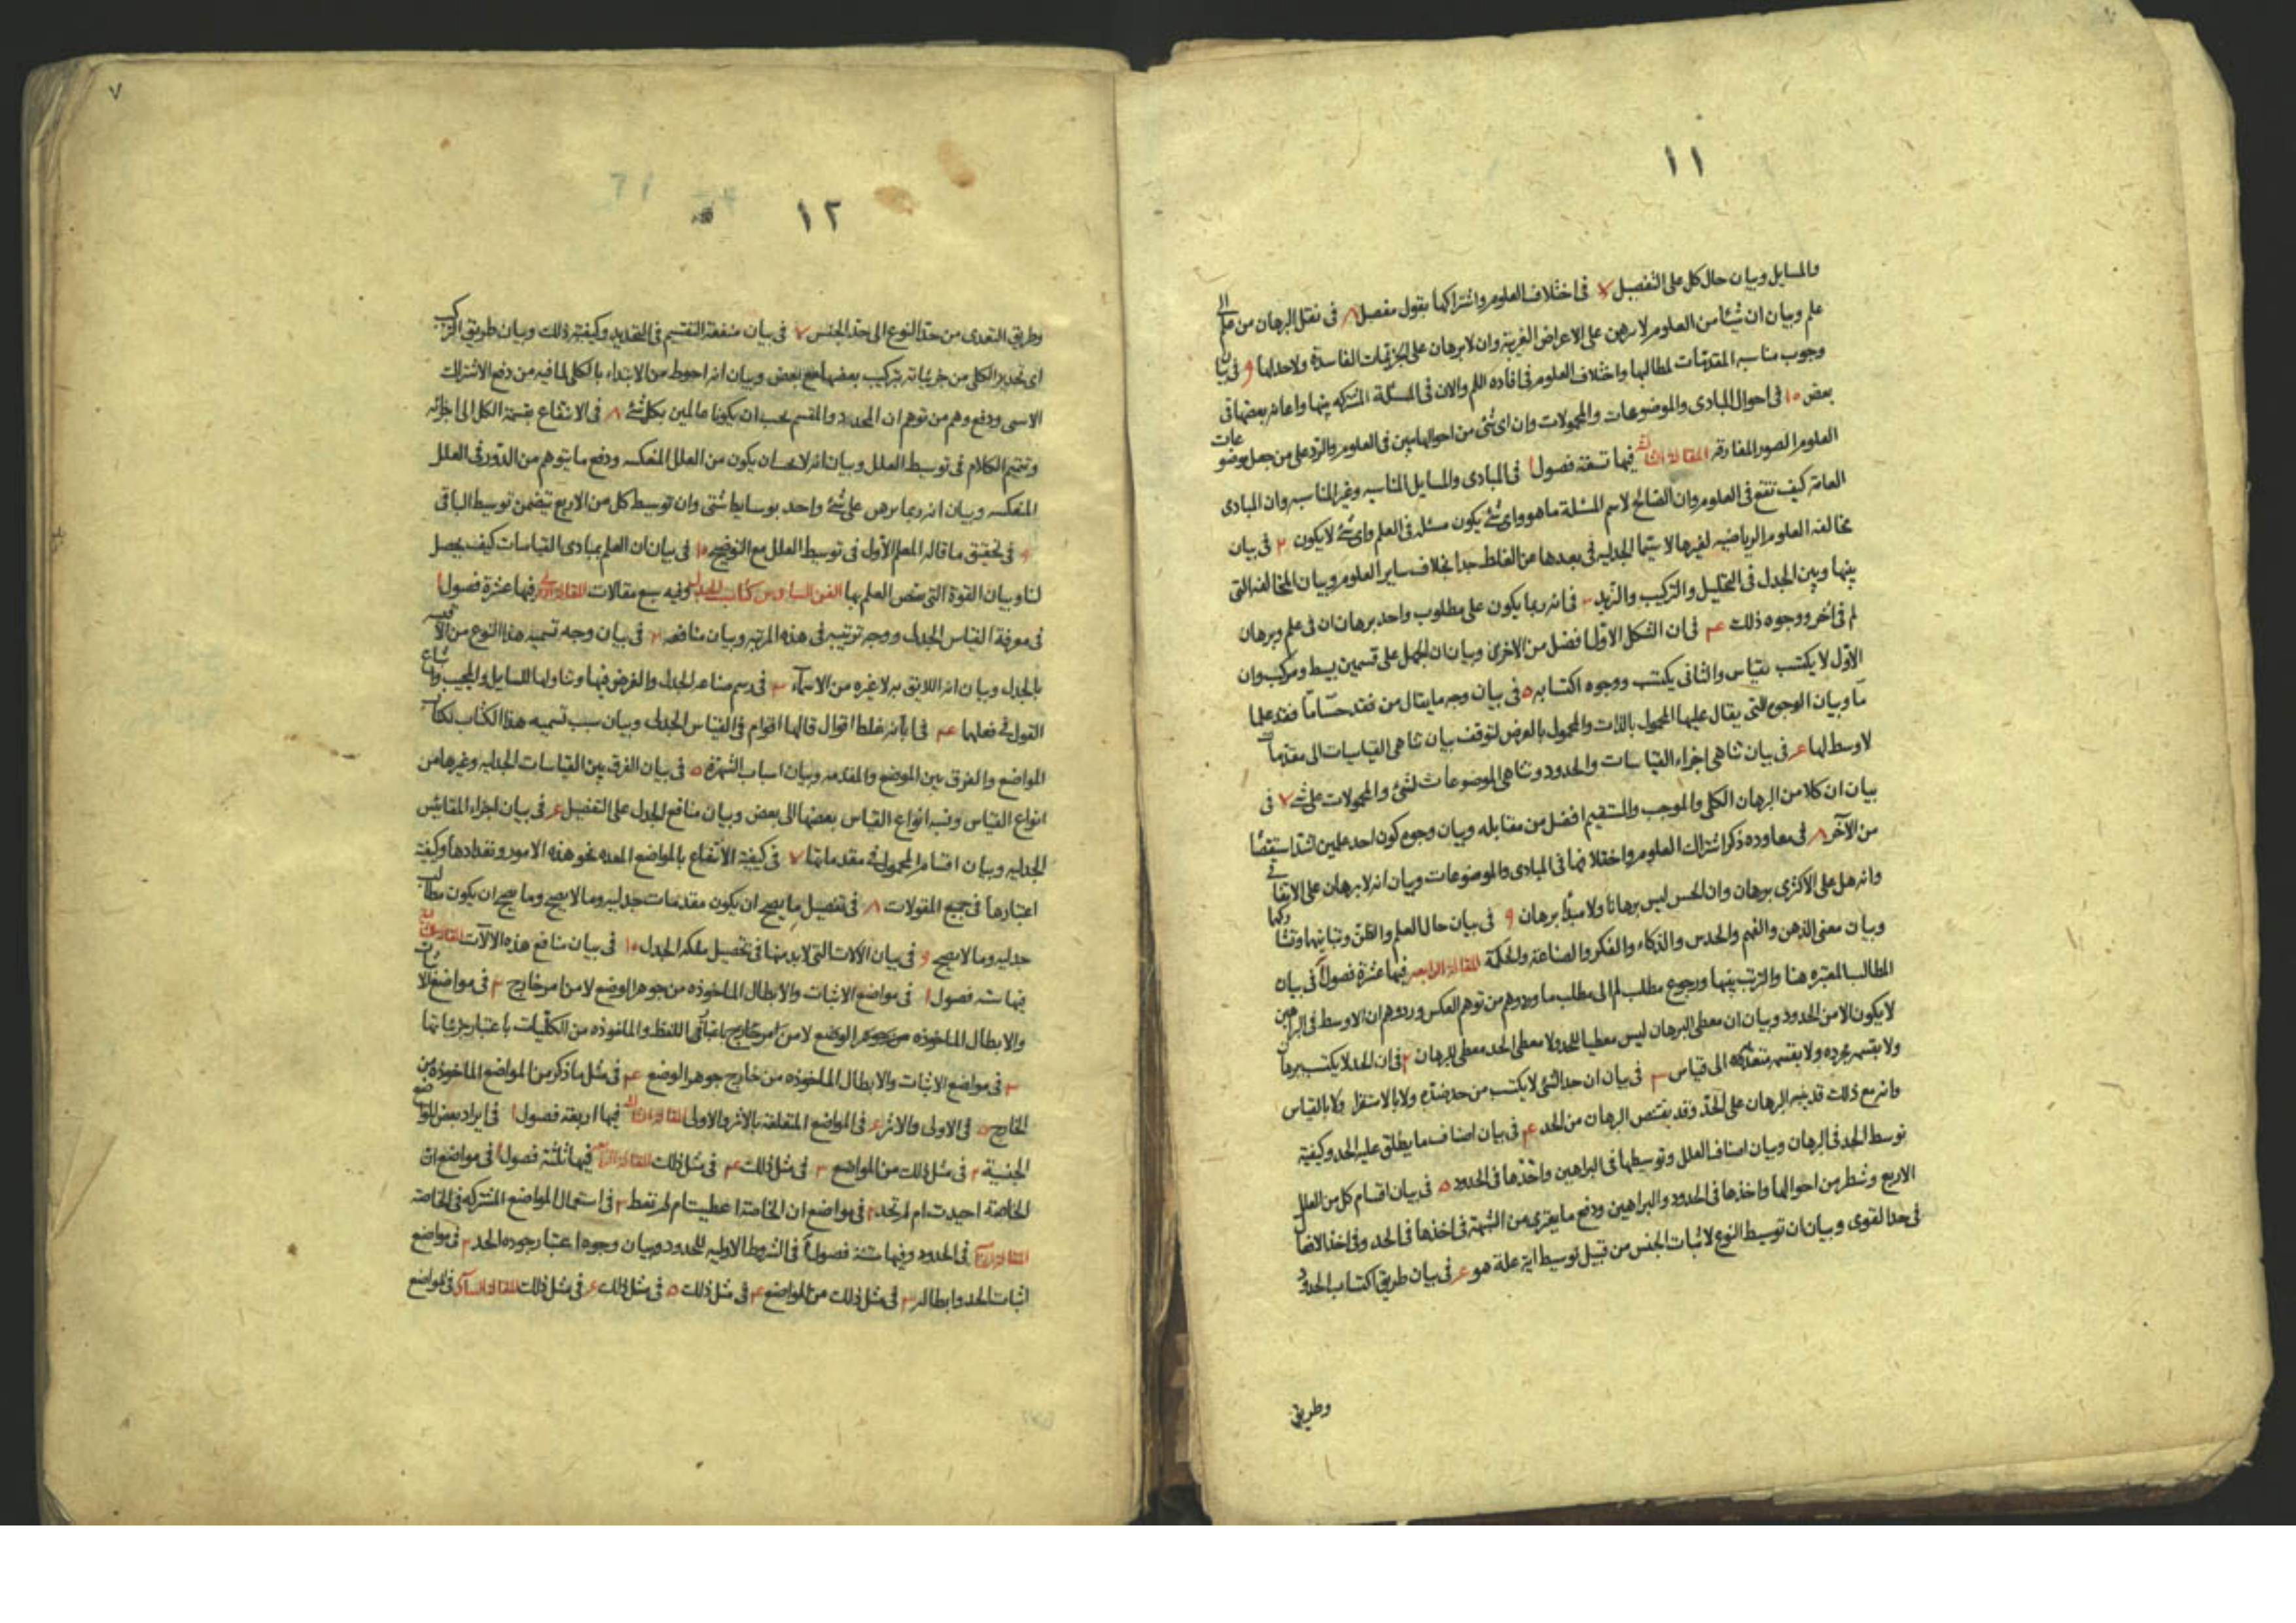 ١١
والمسايل وبيان حال كل على التفصيل ٧ فى اختلاف العلوم واشتراكها بقول مفصل ٨ فى نقل البرهان من علم الى
علم وبيان ان شيئا من العلوم لا يبرهن على الاعراض الغريبة وان لا برهان على الجزئيات الفاسدة ولا حد لها ٩ فى بيان
وجوب مناسبة المقدمات لمطالبها واختلاف العلوم فى افاده اللم والان فى المسئلة المشتركه بينها واعانه بعضها فى
بعض ١٠ فى احوال المبادى والموضوعات والمحمولات وان اى شئ من احوالها يبين فى العلوم والرد على من جعل موضوعات
العلوم الصور المفارقه المقالة الثالثه فيها تسعة فصول ١ فى المبادى والمسايل المناسبه وغير المناسبه وان المبادى
العامه كيف تقع فى العلوم وان الصالح لاسم المسئلة ما هو واى شئ يكون مسئله فى العلم واى شئ لا يكون ٢ فى بيان
مخالفه العلوم الرياضيه لغيرها لا سيما الجدليه فى بعدها عن الغلط جدا بخلاف ساير العلوم وبيان المخالفه التى
بينها وبين الجدل فى التحليل والتركيب والتزيد ٣ فى انه ربما يكون على مطلوب واحد برهان ان فى علم وبرهان
لم فى اخر ووجوه ذلك ٤ فى ان الشكل الاول افضل من الاخرى وبيان ان الجهل على قسمين بسيط ومركب وان
الاول لا يكتسب بقياس والثانى يكتسب ووجوه اكتسابه ٥ فى بيان وجه ما يقال من فقد حسا ما فقد علما
ما وبيان الوجوه التى يقال عليها المحمول بالذات والمحمول بالعرض لتوقف بيان تناهى القياسات الى مقدمات
لا وسط لها ٦ فى بيان تناهى اجزاء القياسات والحدود وتناهى الموضوعات لشئ والمحمولات على شئ ٧ فى
بيان ان كلا من البرهان الكلى والموجب والمستقيم افضل من مقابله وبيان وجوه كون احد علمين اشد استقصاء
من الآخر ٨ فى معاوده ذكر اشتراك العلوم واختلافها فى المبادى والموضوعات وبيان انه لا برهان على الاتفاقى
وانه هل على الاكثرى برهان وان الحس ليس برهانا ولا مبدأ برهان ٩ فى بيان حال العلم والظن وتباينهما وتشاركهما
وبيان معنى الذهن والفهم والحدس والذكاء والفكر والصناعة والحكمة المقالة الرابعه فيها عشرة فصول ١ فى بيان
المطالب المعتبره هنا والترتب بينها ورجوع مطلب لم الى مطلب ما ورد وهم من توهم العكس ورد وهم ان الاوسط فى البراهين
لا يكون الا من الحدود وبيان ان معطى البرهان ليس معطيا للحد ولا معطى الحد معطى للبرهان ٢ فى ان الحد لا يكتسب ببرهان
ولا بقسمه مجرده ولا بقسمه الى قياس ٣ فى بيان ان حد الشئ لا يكتسب من حد ضده ولا بالاستقراء ولا بالقياس
وانه مع ذلك قد ينبه البرهان على الحد وقد يقتنص البرهان من الحد ٤ فى بيان اصناف ما يطلق عليه الحد وكيفية
توسط الحد فى البرهان وبيان اصناف العلل وتوسيطها فى البراهين واخذها فى الحدود ٥ فى بيان اقسام كل من العلل
الاربع وشطر من احوالها واخذها فى الحدود والبراهين ودفع ما يعترى من الشبهة فى اخذها فى الحد وفى اخذ الانفعال
فى حد القوى وبيان ان توسيط النوع لاثبات الجنس من قبيل توسيط اية علة هو ٦ فى بيان طريق اكتساب الحدود
وطريق
٧
١٢
وطريق التعدى من حد النوع الى حد الجنس ٧ فى بيان منفعة التقسيم فى التحديد وكيفية ذلك وبيان طريق التركيب
اى تحديد الكلى من جزئياته بتركيب بعضها مع بعض وبيان انه احوط من الابتداء بالكلى لما فيه من دفع الاشتراك
الاسمى ودفع وهم من توهم ان المحدد والمقسم يجب ان يكونا عالمين بكل شئ ٨ فى الانتفاع بقسمة الكل الى اجزائه
وتتميم الكلام فى توسيط العلل وبيان انه لا يجب ان يكون من العلل المنعكسه ودفع ما يتوهم من الدور فى العلل
المنعكسه وبيان انه ربما يبرهن على شئ واحد بوسايط شتى وان توسيط كل من الاربع يتضمن توسيط الباقى
٩ فى تحقيق ما قاله المعلم الاول فى توسيط العلل مع التوضيح ١٠ فى بيان ان العلم بمبادى القياسات كيف يحصل
لنا وبيان القوة التى تختص العلم بها الفن السادس كتاب الجدل وفيه سبع مقالات المقالة الاولى فيها عشرة فصول ١
فى معرفة القياس الجدلى ووجه ترتيبه فى هذه المرتبه وبيان منافعه ٢ فى بيان وجه تسميه هذا النوع من الاقيسه
بالجدل وبيان انه اللايق به لا غيره من الاسماء ٣ فى رسم صناعه الجدل والغرض فيها وتناولها للسايل والمجيب واتساع
القول فى فعلهما ٤ فى ابانه غلط اقوال قالها اقوام فى القياس الجدلى وبيان سبب تسميه هذا الكتاب بكتاب
المواضع والفرق بين الموضع والمقدمه وبيان اسباب الشهرة ٥ فى بيان الفرق بين القياسات الجدليه وغيرها من
انواع القياس ونسبه انواع القياس بعضها الى بعض وبيان منافع الجدل على التفصيل ٦ فى بيان اجزاء المقائيس
الجدليه وبيان اقسام المحمول فى مقدماتها ٧ فى كيفية الانتفاع بالمواضع المعده نحو هذه الامور وتعدادها وكيفية
اعتبارها فى جميع المقولات ٨ فى تفصيل ما يصح ان يكون مقدمات جدليه وما لا يصح وما يصح ان يكون مطالب
جدليه وما لا يصح ٩ فى بيان الآلات التى لا بد منها فى تحصيل ملكه الجدل ١٠ فى بيان منافع هذه الآلات المقالة الثانيه
فيها سته فصول ١ فى مواضع الاثبات والابطال الماخوذه من جوهر الوضع لا من امر خارج ٢ فى مواضع الاثبات
والابطال الماخوذه من جوهر الوضع لا من امر خارج اعنى اللفظ والماخوذه من الكليات باعتبار جزئياتها
٣ فى مواضع الاثبات والابطال الماخوذه من خارج جوهر الوضع ٤ فى مثل ما ذكر من المواضع الماخوذه من
الخارج ٥ فى الاولى والاثر ٦ فى المواضع المتعلقة بالاثر والاولى المقالة الثالثه فيها اربعة فصول ١ فى ايراد بعض المواضع
الجنسية ٢ فى مثل ذلك من المواضع ٣ فى مثل ذلك ٤ فى مثل ذلك المقالة الرابعه فيها ثلثة فصول ١ فى مواضع ان
الخاصة اجيدت ام لم تجد ٢ فى مواضع ان الخاصة اعطيت ام لم تعط ٣ فى استعمال المواضع المشتركه فى الخاصه
المقالة الخامسه فى الحدود وفيها ستة فصول ١ فى الشروط الاوليه للحدود وبيان وجوه اعتبار جوده الحد ٢ فى مواضع
اثبات الحد وابطاله ٣ فى مثل ذلك من المواضع ٤ فى مثل ذلك ٥ فى مثل ذلك ٦ فى مثل ذلك المقالة السادسه فى المواضع